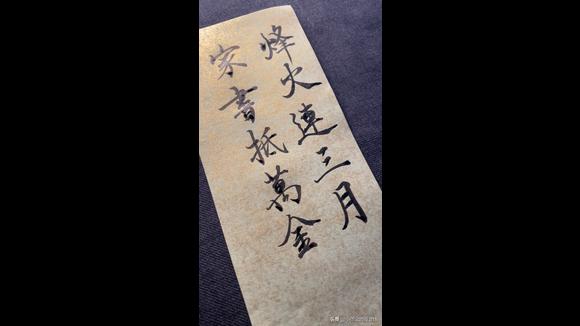 烽火連三月
家書抵萬金